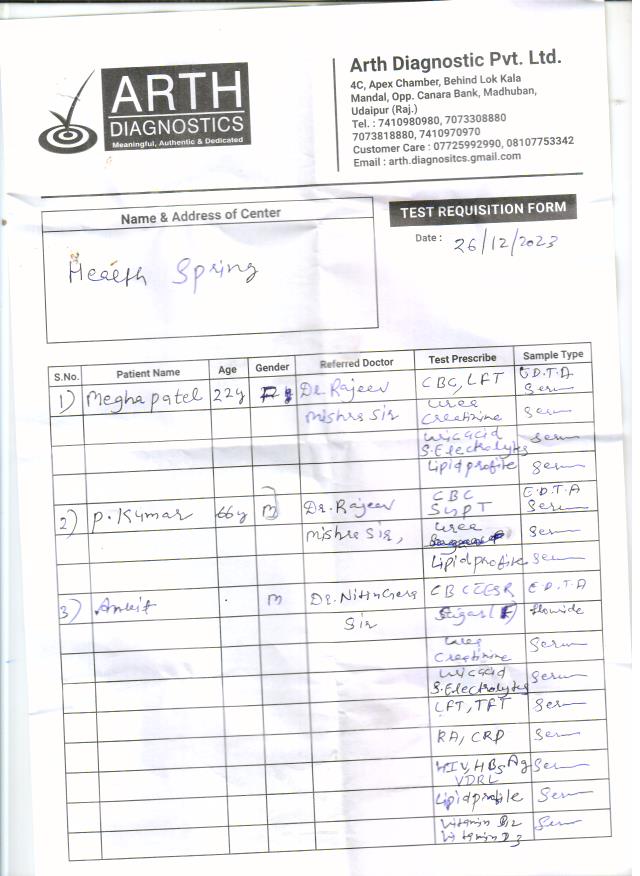 ARTH
DIAGNOSTICS
Meaningful, Authentic & Dedicated
Arth Diagnostic Pvt. Ltd.
4C, Apex Chamber, Behind Lok Kala
Mandal, Opp. Canara Bank, Madhuban,
Udaipur (Raj.)
Tel. : 7410980980, 7073308880
7073818880, 7410970970
Customer Care : 07725992990, 08107753342
Email : arth.diagnositcs.gmail.com
Name & Address of Center
TEST REQUISITION FORM
Date : 26/12/2023
Health Spring
S.No. Patient Name Age Gender Referred Doctor Test Prescribe Sample Type
1) Megha patel 22y Dr. Rajeev CBC, LFT E.D.T.A
Serum
mishra Sir Urea
Creatinine Serum
Uric acid
S. Electrolytes Serum
Lipid profile Serum
2) P. Kumar 66y m Dr. Rajeev CBC E.D.T.A
SGPT Serum
mishra Sir, Urea Serum
Lipid profile Serum
3) Ankit m Dr. Nitin Garg CBC ESR E.D.T.A
Sir Sugar (F) flouride
Urea
Creatinine Serum
Uric acid
S. Electrolytes Serum
LFT, TFT Serum
RA, CRP Serum
HIV, HBsAg Serum
VDRL
Lipid profile Serum
Vitamin B12 Serum
Vitamin D3